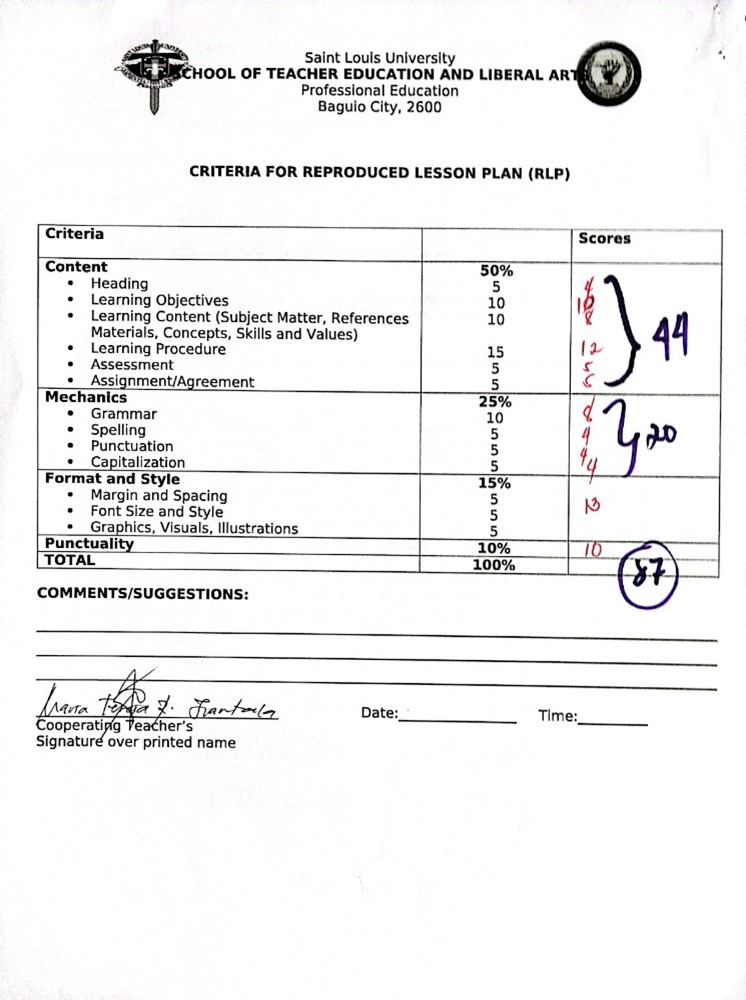 Saint Louis University
SCHOOL OF TEACHER EDUCATION AND LIBERAL ARTS
Professional Education
Baguio City, 2600
CRITERIA FOR REPRODUCED LESSON PLAN (RLP)
Criteria Scores
Content 50%
• Heading 5 4
• Learning Objectives 10 10
• Learning Content (Subject Matter, References 10 8
Materials, Concepts, Skills and Values)
• Learning Procedure 15 12
• Assessment 5 5
• Assignment/Agreement 5 5
44
Mechanics 25%
• Grammar 10 8
• Spelling 5 4
• Punctuation 5 4
• Capitalization 5 4
20
Format and Style 15%
• Margin and Spacing 5
• Font Size and Style 5 13
• Graphics, Visuals, Illustrations 5
Punctuality 10% 10
TOTAL 100% 87
COMMENTS/SUGGESTIONS:
Maria Teresa
Cooperating Teacher's
Signature over printed name
Date: Time: